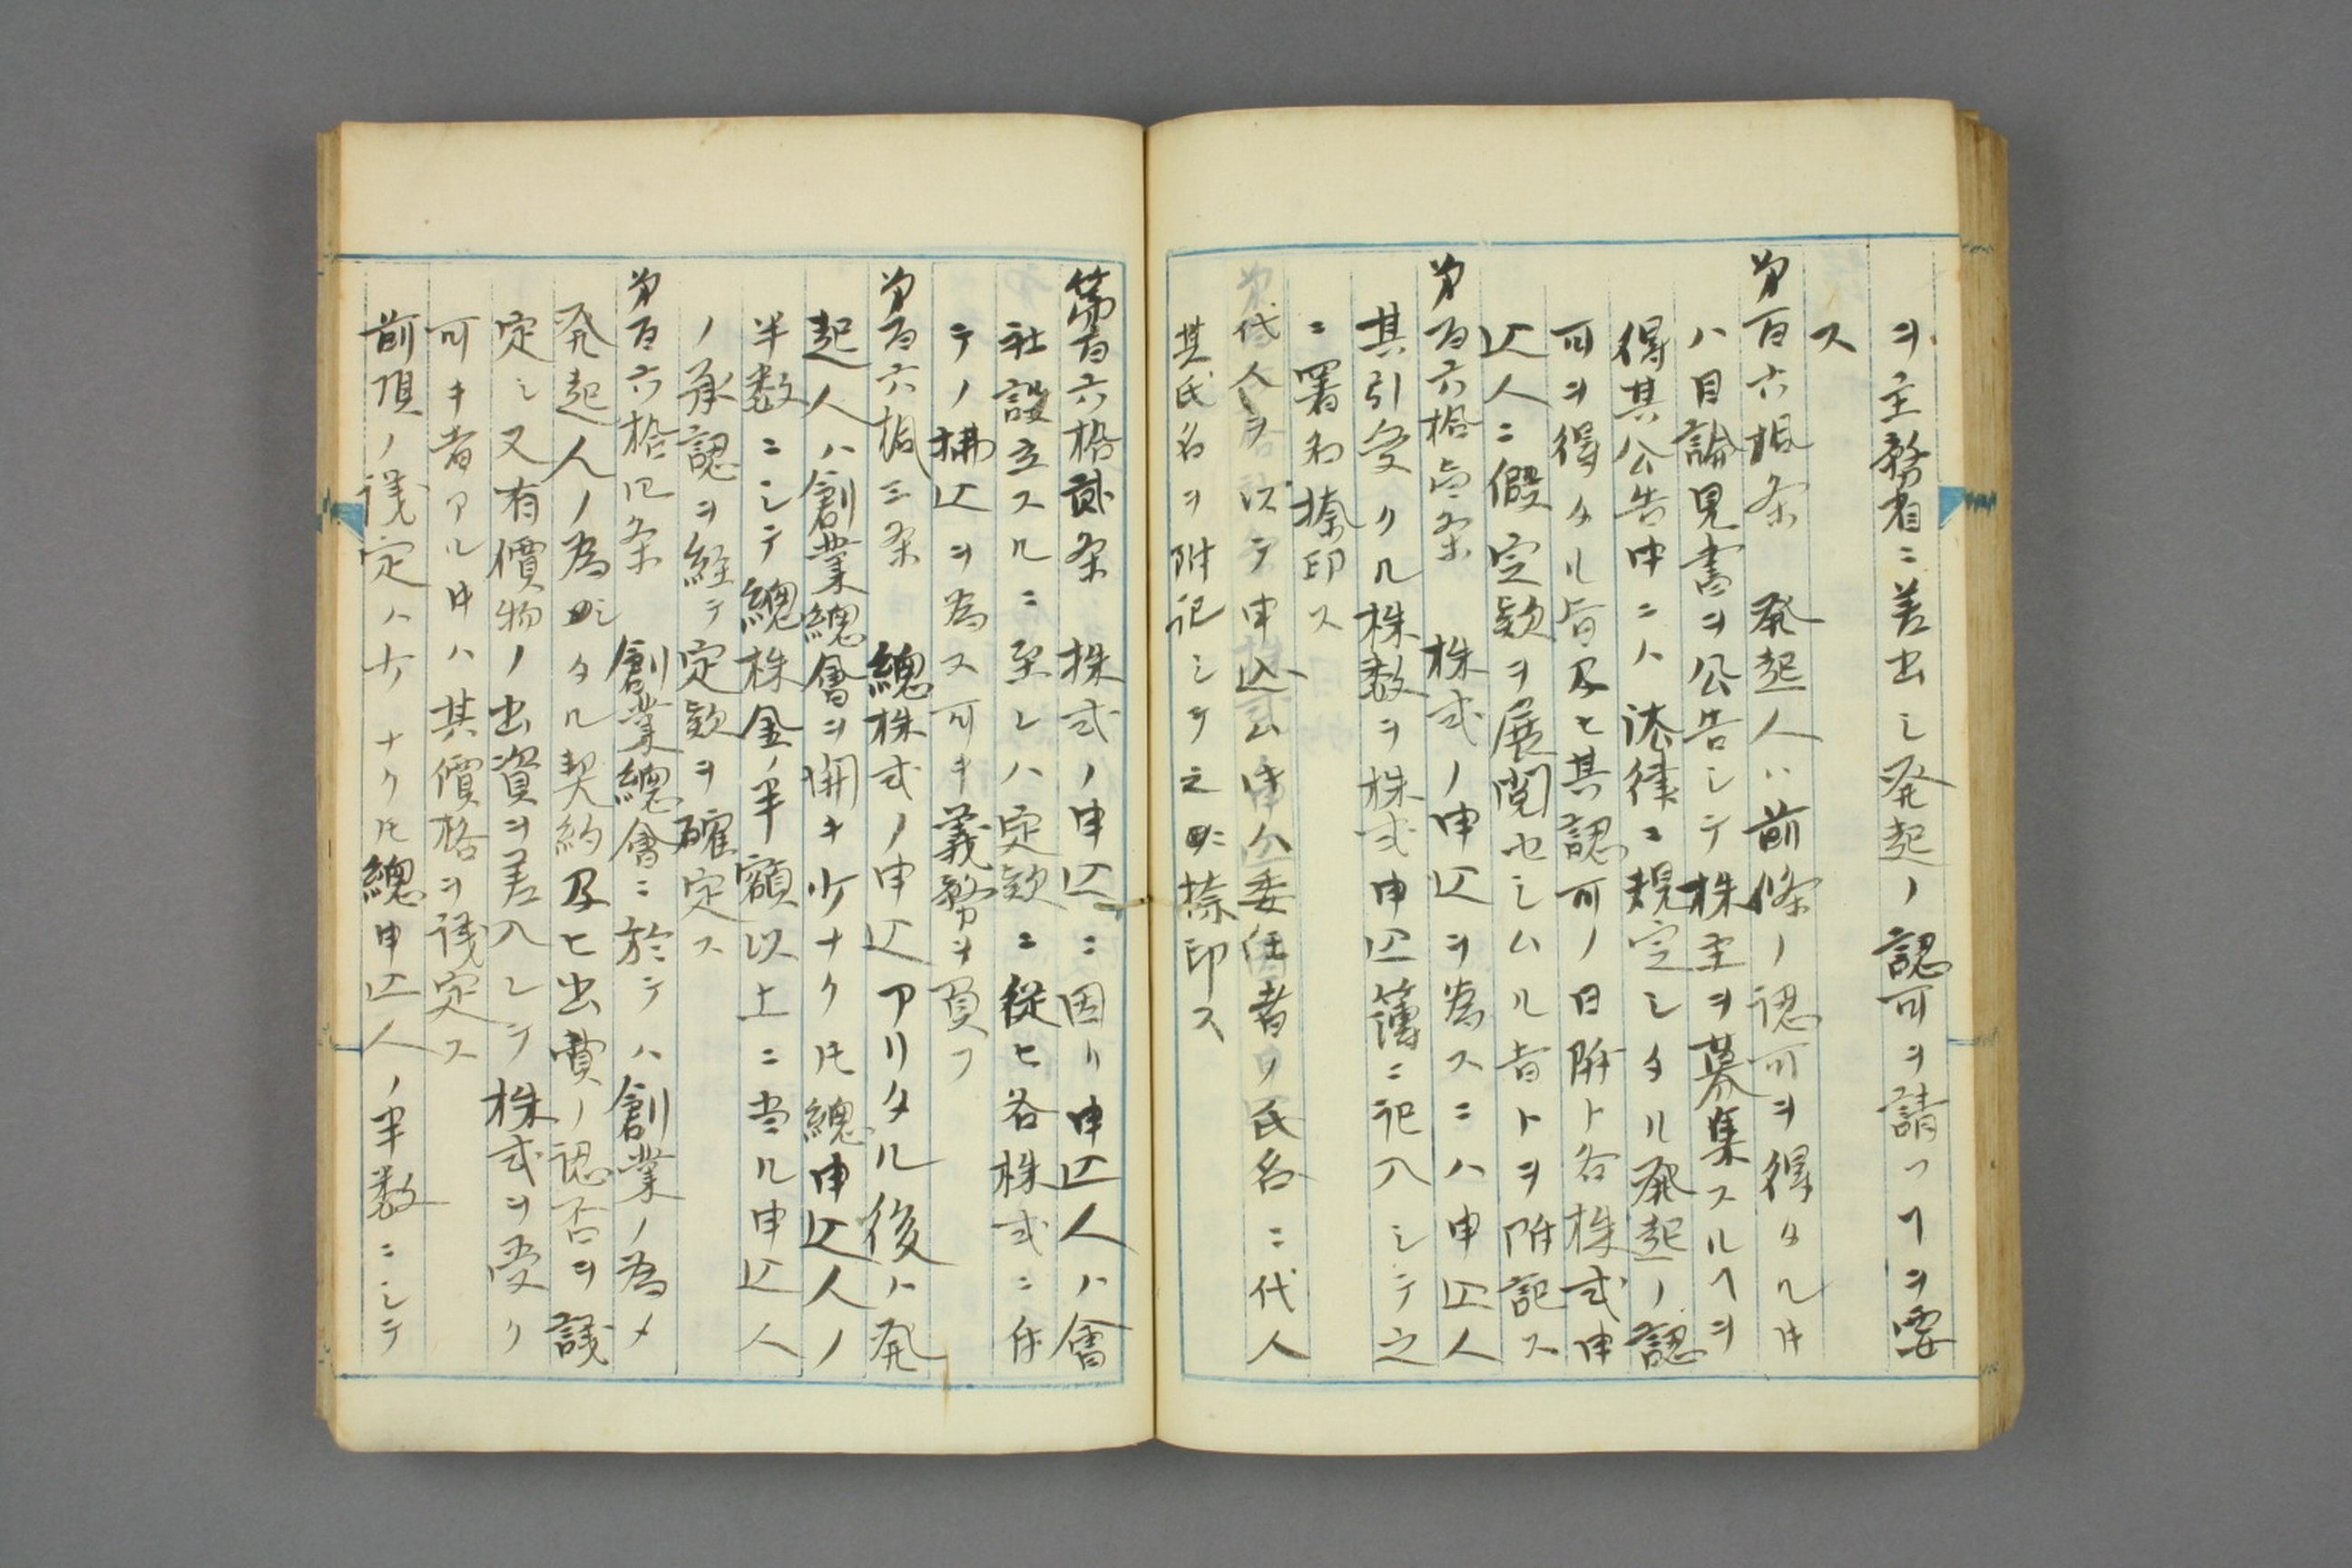 ヲ主務省ニ差出シ発起ノ認可ヲ請フヿヲ要
ス
第百六拾条　発起人ハ前條ノ認可ヲ得タル片
ハ目論見書ヲ公告シテ株主ヲ募集スルヿヲ
得其公告中ニハ法律ニ規定シタル発起ノ認
可ヲ得タル旨及ヒ其認可ノ日附ト各株式申
込人ニ假定款ヲ展閲セシムル旨トヲ附記ス
第百六拾壱条　株式ノ申込ヲ為スニハ申込人
其引受クル株数ヲ株式申込簿ニ記入シテ之
ニ署名捺印ス
代人ヲ以テ申込ム片ハ委任者ノ氏名ニ代人
其氏名ヲ附記シテ之ニ捺印ス
第百六拾貳条　株式ノ申込ニ因リ申込人ハ會
社設立スルニ至レハ定款ニ従ヒ各株式ニ付
テノ拂込ヲ為ス可キ義務ヲ負フ
第百六拾三条　總株式ノ申込アリタル後ハ発
起人ハ創業總會ヲ開キ少ナクトモ總申込人ノ
半数ニシテ總株金ノ半額以上ニ当ル申込人
ノ承認ヲ経テ定款ヲ確定ス
第百六拾四条　創業總會ニ於テハ創業ノ為メ
発起人ノ為シタル契約及ヒ出費ノ認否ヲ議
定シ又有價物ノ出資ヲ差入レテ株式ヲ受ク
可キ者アル片ハ其價格ヲ議定ス
前項ノ議定ハ少ナクトモ總申込人ノ半数ニシテ